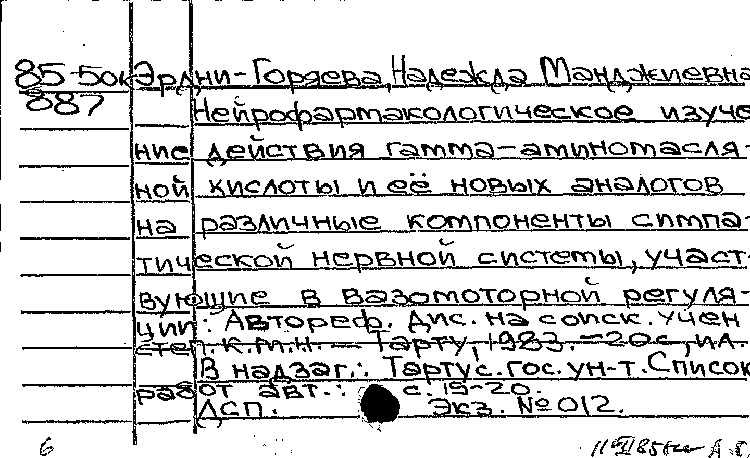 85-5ок Эрдни-Горяева, Надежда Манджиевна
887 Нейрофармакологическое изуче
ние действия гамма-аминомасля-
ной кислоты и её новых аналогов
на различные компоненты симпа-
тической нервной системы, участ
вующие в вазомоторной регуля-
ции: Автореф. дис. на соиск. учен
степ. к.м.н. – Тарту, 1983. – 20с., ил.
В надзаг.: Тартус. гос. ун-т. Список
работ авт.: с. 19-20.
ДСП. Экз. № 012.
6